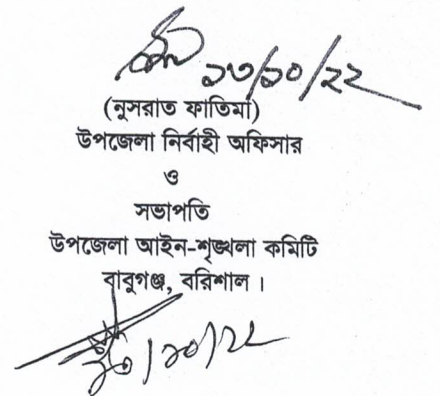 ১৩/১০/২২
(নুসরাত ফাতিমা)
উপজেলা নির্বাহী অফিসার
ও
সভাপতি
উপজেলা আইন-শৃঙ্খলা কমিটি
বাবুগঞ্জ, বরিশাল।
১৩/১০/২২